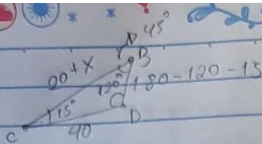 45°
B
20+x
120°
180-120-15
15°
D
40
C